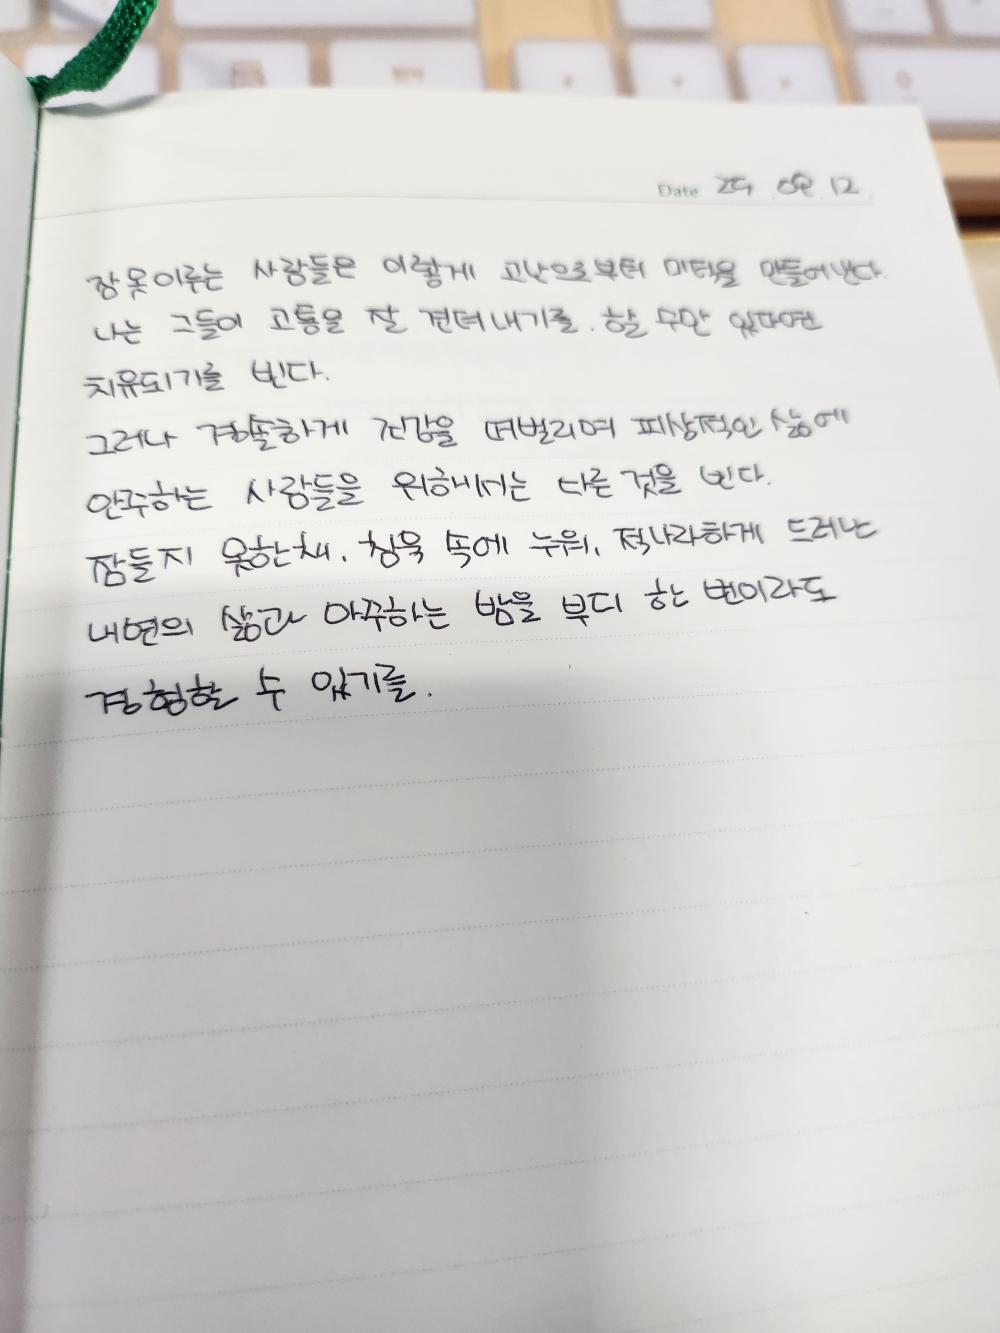 Date 25 .08. 12.
잠못이루는 사람들은 이렇게 고난으로부터 미덕을 만들어낸다.
나는 그들이 고통을 잘 견뎌내기를. 할 수만 있다면
치유되기를 빈다.
그러나 경솔하게 건강을 떠벌리며 피상적인 삶에
안주하는 사람들을 위해서는 다른 것을 빈다.
잠들지 못한채, 침묵 속에 누워, 적나라하게 드러난
내면의 삶과 마주하는 밤을 부디 한 번이라도
경험할 수 있기를.